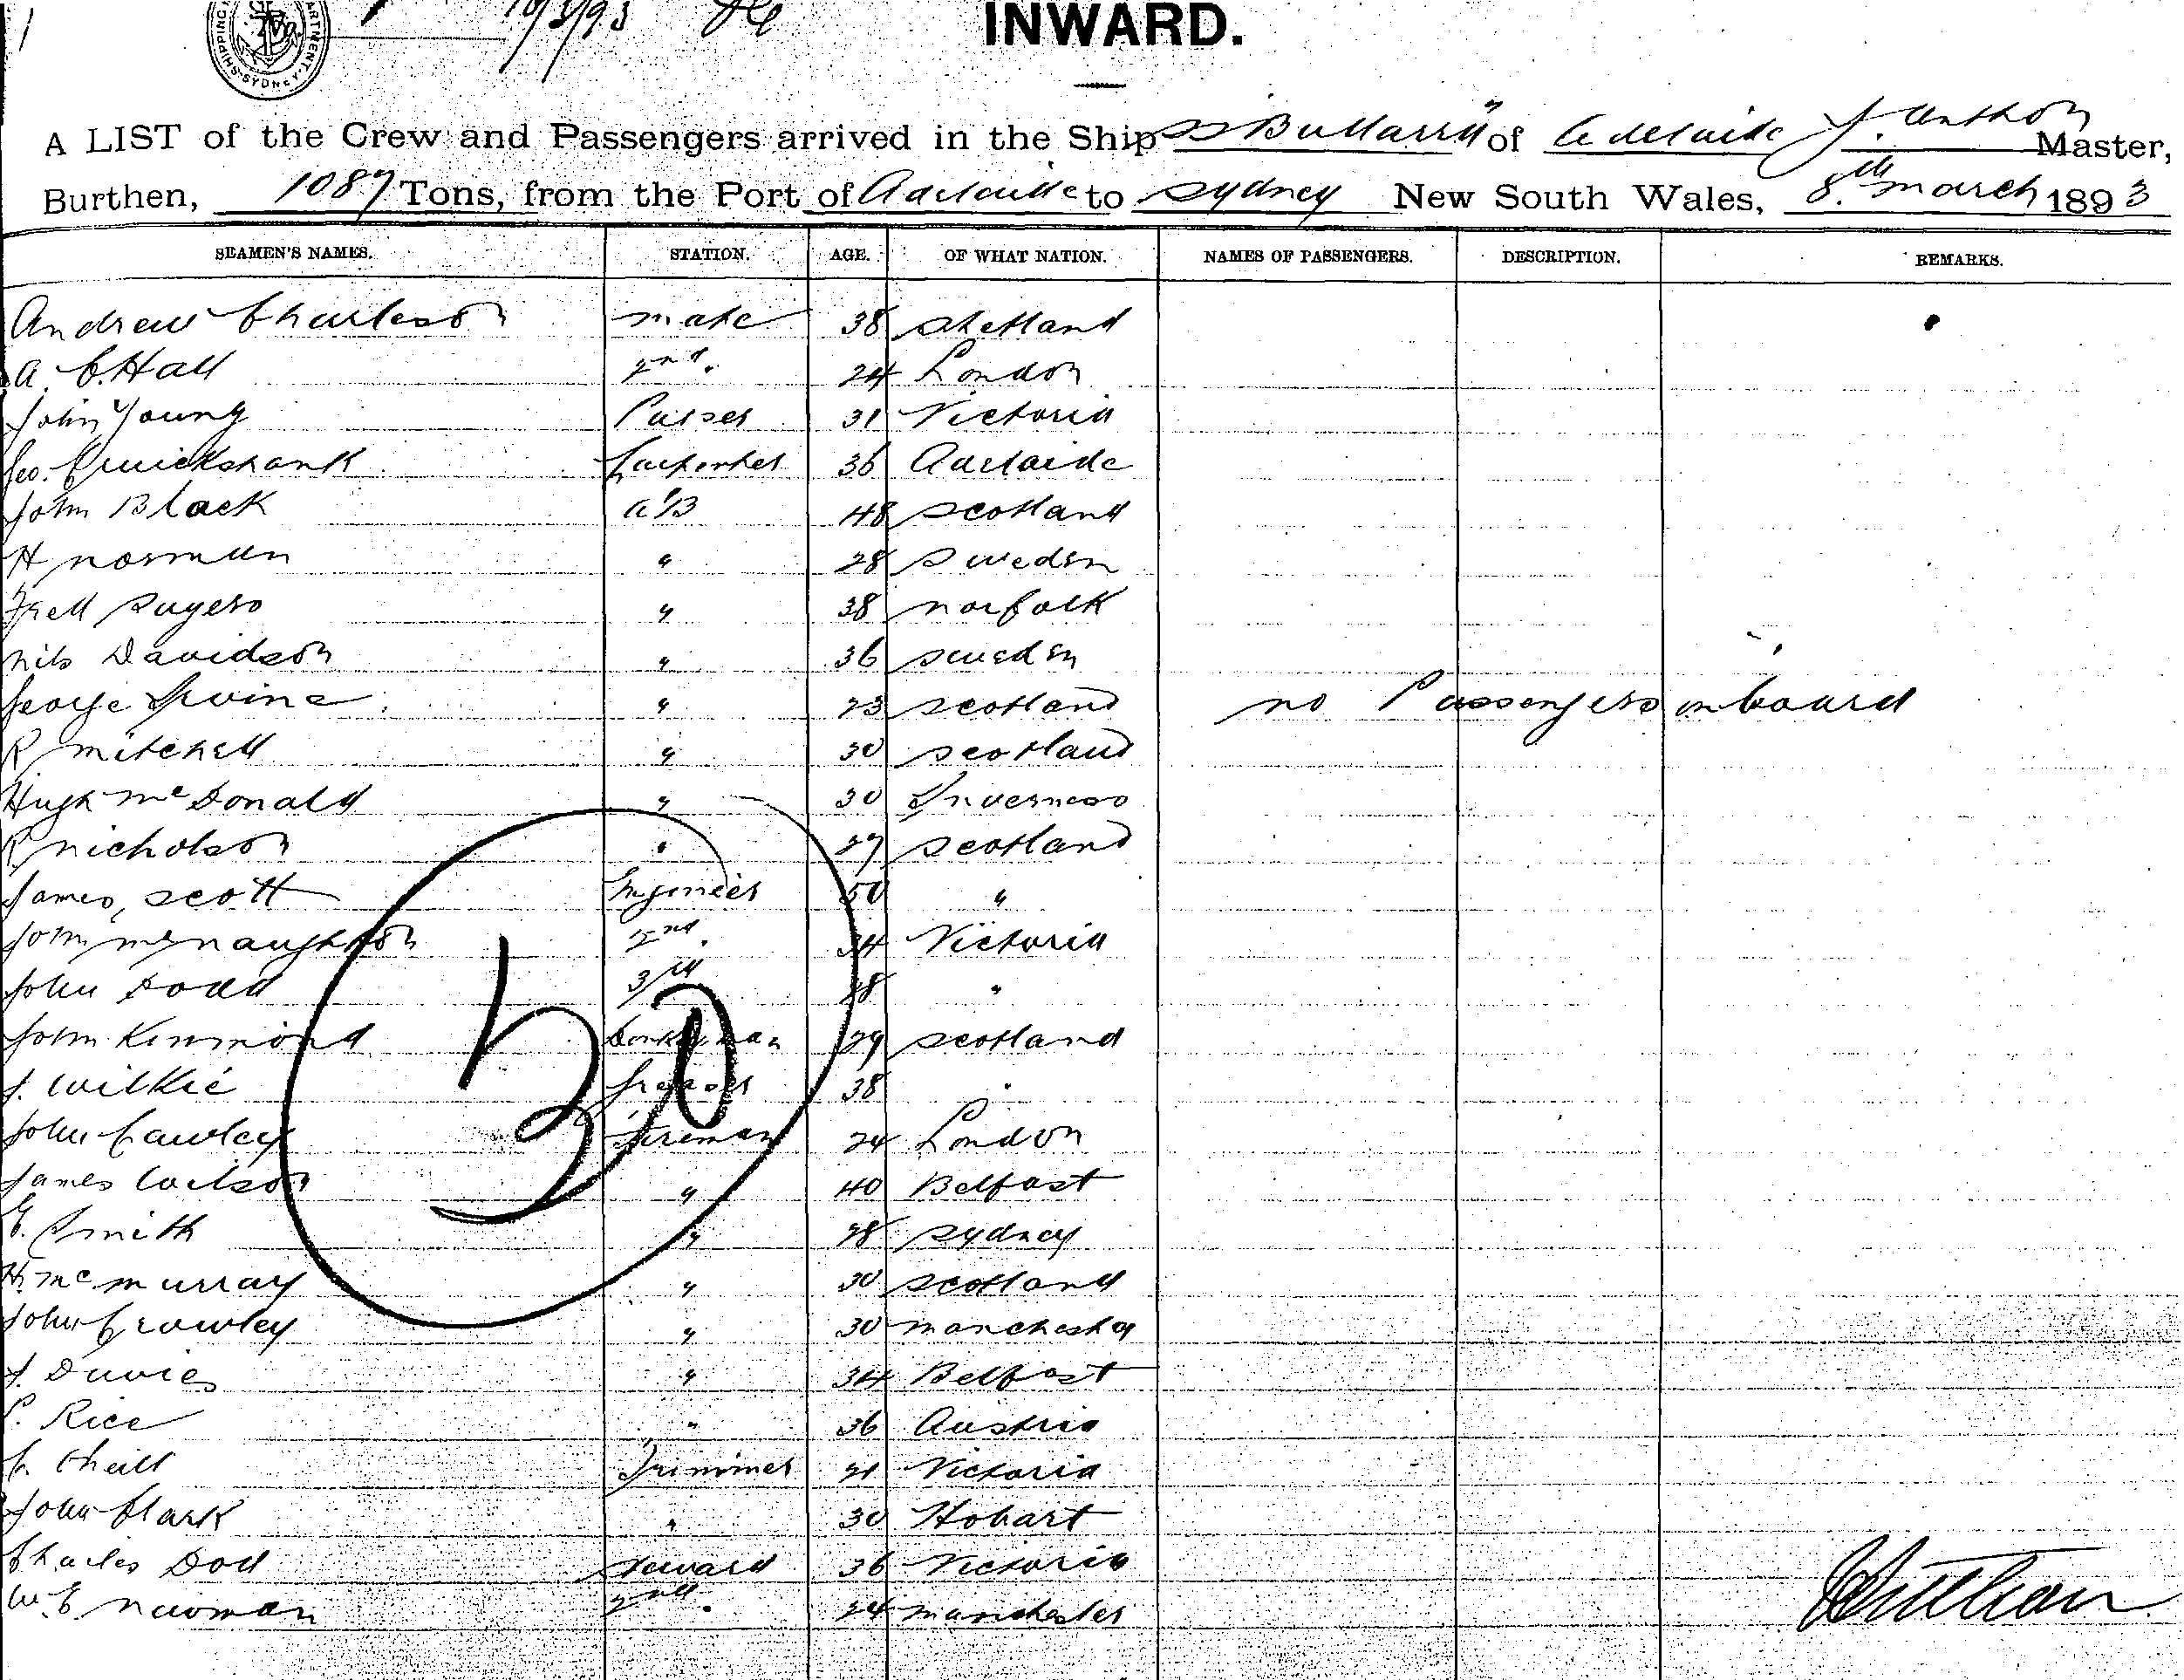 10/3/93
SHIPPING DEPARTMENT. SYDNEY
INWARD.
A LIST of the Crew and Passengers arrived in the Ship SS "Bullarra" of Adelaide J. Anthon Master,
Burthen, 1087 Tons, from the Port of Adelaide to Sydney New South Wales, 8.th March 1893
SEAMEN'S NAMES. STATION. AGE. OF WHAT NATION. NAMES OF PASSENGERS. DESCRIPTION. REMARKS.
Andrew Charleson mate 38 Shetland
A. C. Hall 2nd. 24 London
John Young Purser 31 Victoria
Geo. Cruickshank 36 Adelaide
John Black AB 48 Scotland
H Norman " 28 Sweden
Fred " 38 Norfolk
Nils Davidson " 36 Sweden
George Irvine " 23 Scotland no Passengers on board
R Mitchell " 30 Scotland
Hugh McDonald " 30 Inverness
R Nicholson " 27 Scotland
James Scott Engineer 50 "
John McNaughton 2nd. 34 Victoria
John Dodd 3rd 28 "
John Kinmond Donkeyman 29 Scotland
J. Wilkie Greaser 38 "
John Cawley Fireman 24 London
James Wilson " 40 Belfast
G. Smith " 28 Sydney
H. McMurray " 30 Scotland
John Crowley " 30 Manchester
J. Davies " 34 Belfast
P. Rice " 36 Austria
C. Oneill Trimmer 21 Victoria
John Clark " 30 Hobart
Charles Dod Steward 36 Victoria
W. E. Newman 2nd. 24 Manchester
30